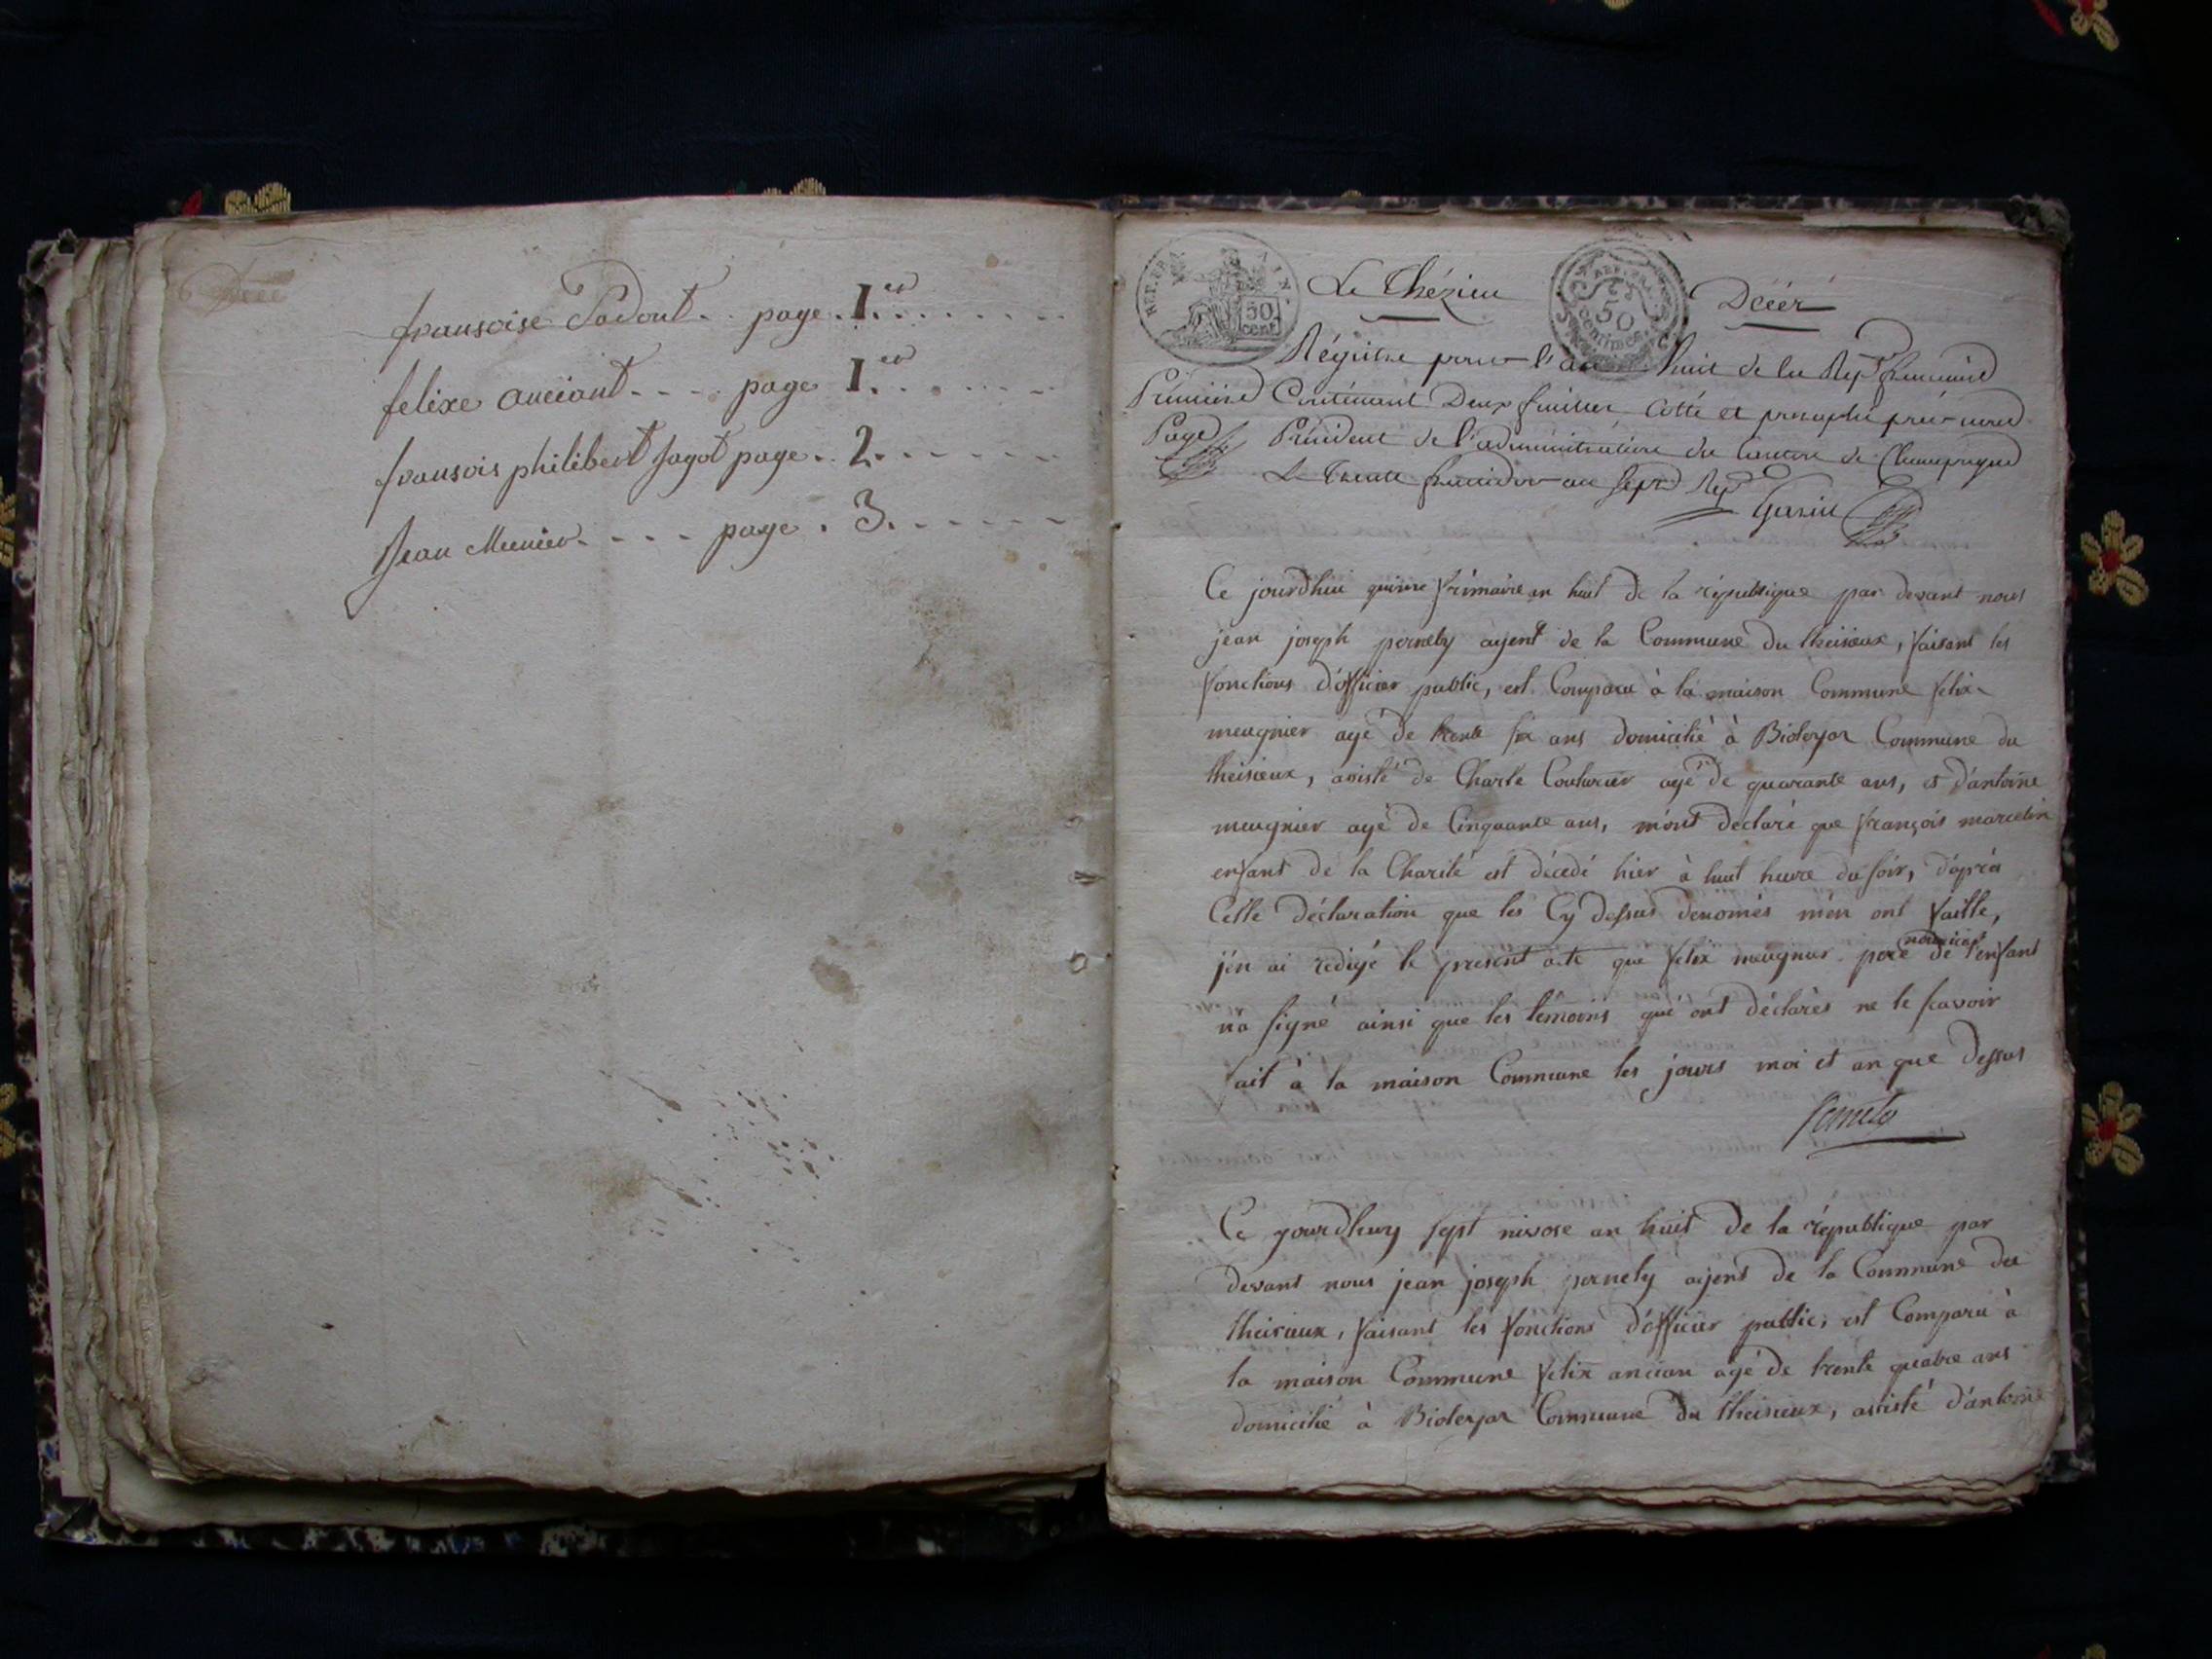 fransoise Padout.. page. 1.er
felixe anciant.... page 1.er
fransois philibert Jagot page.. 2.
Jean Meunier..... page. 3.
REP. FRA. AIN.
50 cent.
REP. FRA.
50 centimes
Le Thézieu
Décér
Régistre pour l'an huit de la Rep.
Prémiére Contenant Deux feuilles Cotté et paraphé par nous
Page Président de l'administration du Canton de Champagne
Le Trente fructidor an sept Rep.
Garin
Ce jourdhui quinze frimaire an huit de la république par devant nous
jean joseph pernety agent de la Commune du theisieux, faisant les
fonctions d'officier public, est Comparu à la maison Commune felix
meugnier agé de trente six ans domicilié à Bioleyar Commune du
theisieux, assisté de Charle Couturier agé de quarante ans, et d'antoine
meugnier agé de Cinquante ans, m'ont declaré que françois marcelin
enfant de la Charité est décedé hier à huit heure du soir, d'après
Cette déclaration que les Cy dessus denomés m'en ont faitte,
j'en ai redigé le présent acte que felix meugnier pere nourricier de l'enfant
n'a signé ainsi que les témoins qui ont déclarés ne le scavoir
fait à la maison Commune les jours moi et an que dessus
pernety
Ce jourdhuy sept nivose an huit de la république par
devant nous jean joseph pernety agent de la Commune du
theisieux, faisant les fonctions d'officier public, est Comparu à
la maison Commune felix ancian agé de trente quatre ans
domicilié à Bioleyar Commune du theisieux, assisté d'antoine